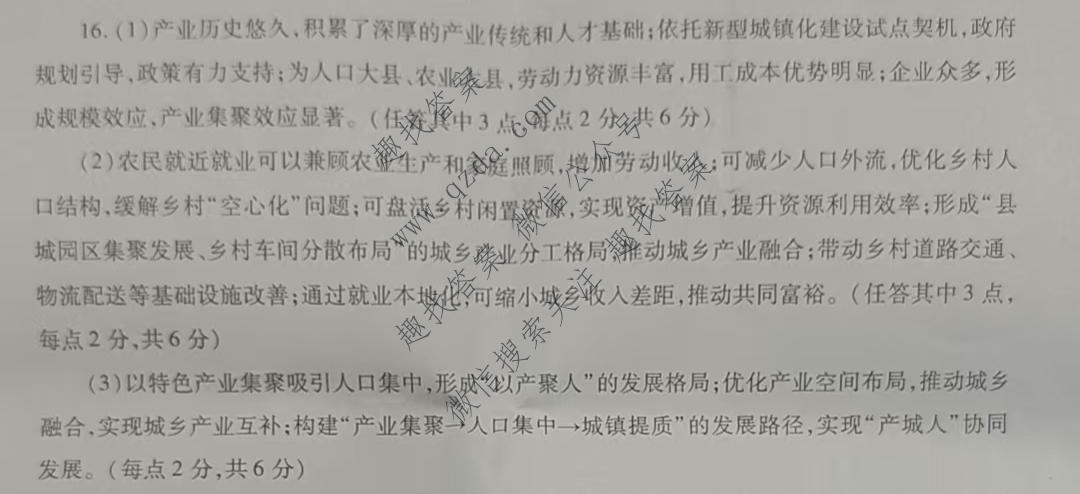 16.(1)产业历史悠久,积累了深厚的产业传统和人才基础;依托新型城镇化建设试点契机,政府
规划引导,政策有力支持;为人口大县、农业大县,劳动力资源丰富,用工成本优势明显;企业众多,形
成规模效应,产业集聚效应显著。(任答其中3点,每点2分,共6分)
(2)农民就近就业可以兼顾农业生产和家庭照顾,增加劳动收入;可减少人口外流,优化乡村人
口结构,缓解乡村“空心化”问题;可盘活乡村闲置资源,实现资产增值,提升资源利用效率;形成“县
城园区集聚发展、乡村车间分散布局”的城乡产业分工格局,推动城乡产业融合;带动乡村道路交通、
物流配送等基础设施改善;通过就业本地化,可缩小城乡收入差距,推动共同富裕。(任答其中3点,
每点2分,共6分)
(3)以特色产业集聚吸引人口集中,形成“以产聚人”的发展格局;优化产业空间布局,推动城乡
融合,实现城乡产业互补;构建“产业集聚→人口集中→城镇提质”的发展路径,实现“产城人”协同
发展。(每点2分,共6分)
趣找答案
www.qzda.com
微信公众号
趣找答案
微信搜索关注 趣找答案